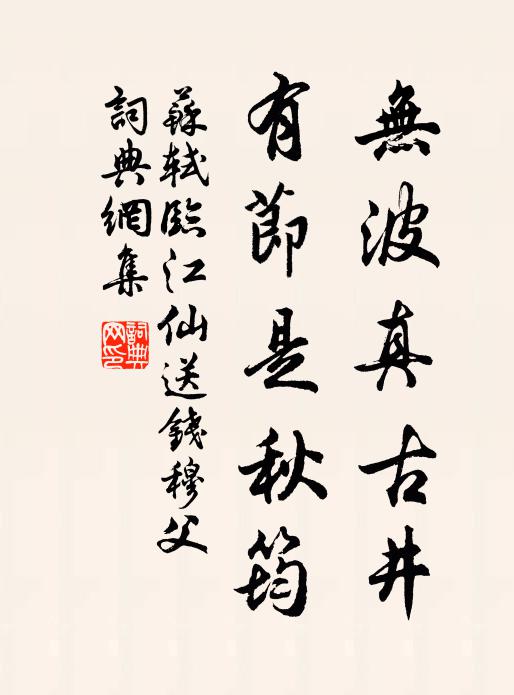 無波真古井
有節是秋筠
蘇軾臨江仙送錢穆父
詞典網集
詞典網印